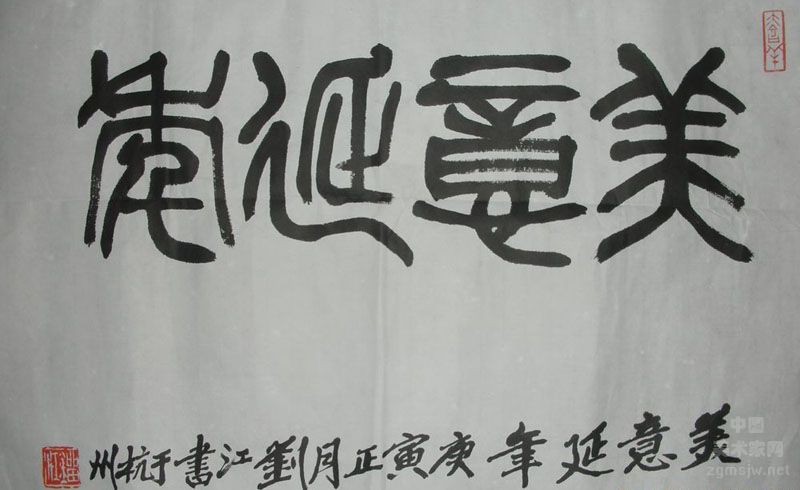 美意延年
美意延年 庚寅正月劉江書于杭州
中国
美术家网
zgmsjw.net